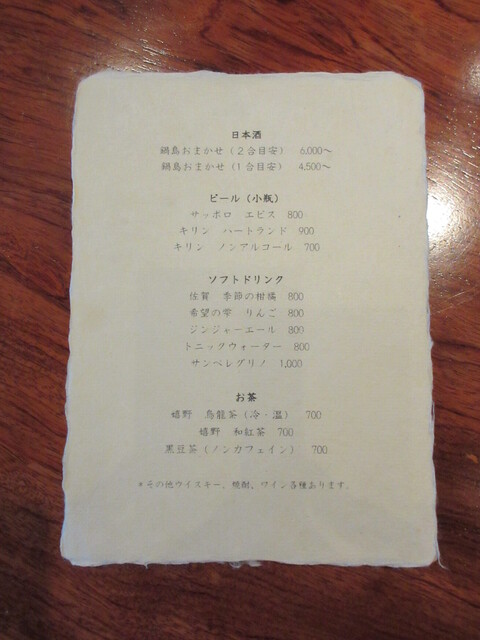 日本酒
鍋島おまかせ（２合目安）　6,000～
鍋島おまかせ（１合目安）　4,500～
ビール（小瓶）
サッポロ　エビス　800
キリン　ハートランド　900
キリン　ノンアルコール　700
ソフトドリンク
佐賀　季節の柑橘　800
希望の雫　りんご　800
ジンジャーエール　800
トニックウォーター　800
サンペレグリノ　1,000
お茶
嬉野　烏龍茶（冷・温）　700
嬉野　和紅茶　700
黒豆茶（ノンカフェイン）　700
＊その他ウイスキー、焼酎、ワイン各種あります。